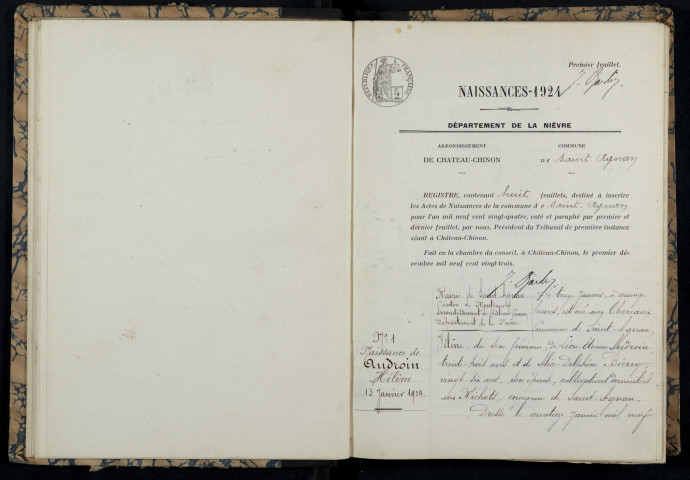 Premier feuillet.
RÉPUBLIQUE FRANÇAISE
2
NAISSANCES-1924
DÉPARTEMENT DE LA NIÈVRE
ARRONDISSEMENT
DE CHATEAU-CHINON
COMMUNE
de Saint Agnan
REGISTRE, contenant huit feuillets, destiné à inscrire
les Actes de Naissances de la commune de Saint-Agnan
pour l'an mil neuf cent vingt-quatre, coté et paraphé par premier et
dernier feuillet, par nous, Président du Tribunal de première instance
séant à Château-Chinon.
Fait en la chambre du conseil, à Château-Chinon, le premier dé-
cembre mil neuf cent vingt-trois.
Mairie de Saint Agnan
Canton de Montsauche
Arrondissement de Château Chinon
Département de la Nièvre
Le treize Janvier, à quinze
heures, est née aux
commune de Saint-Agnan,
N° 1
Naissance de
Androin
Hélène
13 Janvier 1924.
Hélène, du sexe féminin de Léon Androin
trente trois ans et de Delphine
vingt six ans, son épouse, cultivateurs domiciliés
aux Michots, commune de Saint-Agnan.
Dressé le quatorze Janvier mil neuf